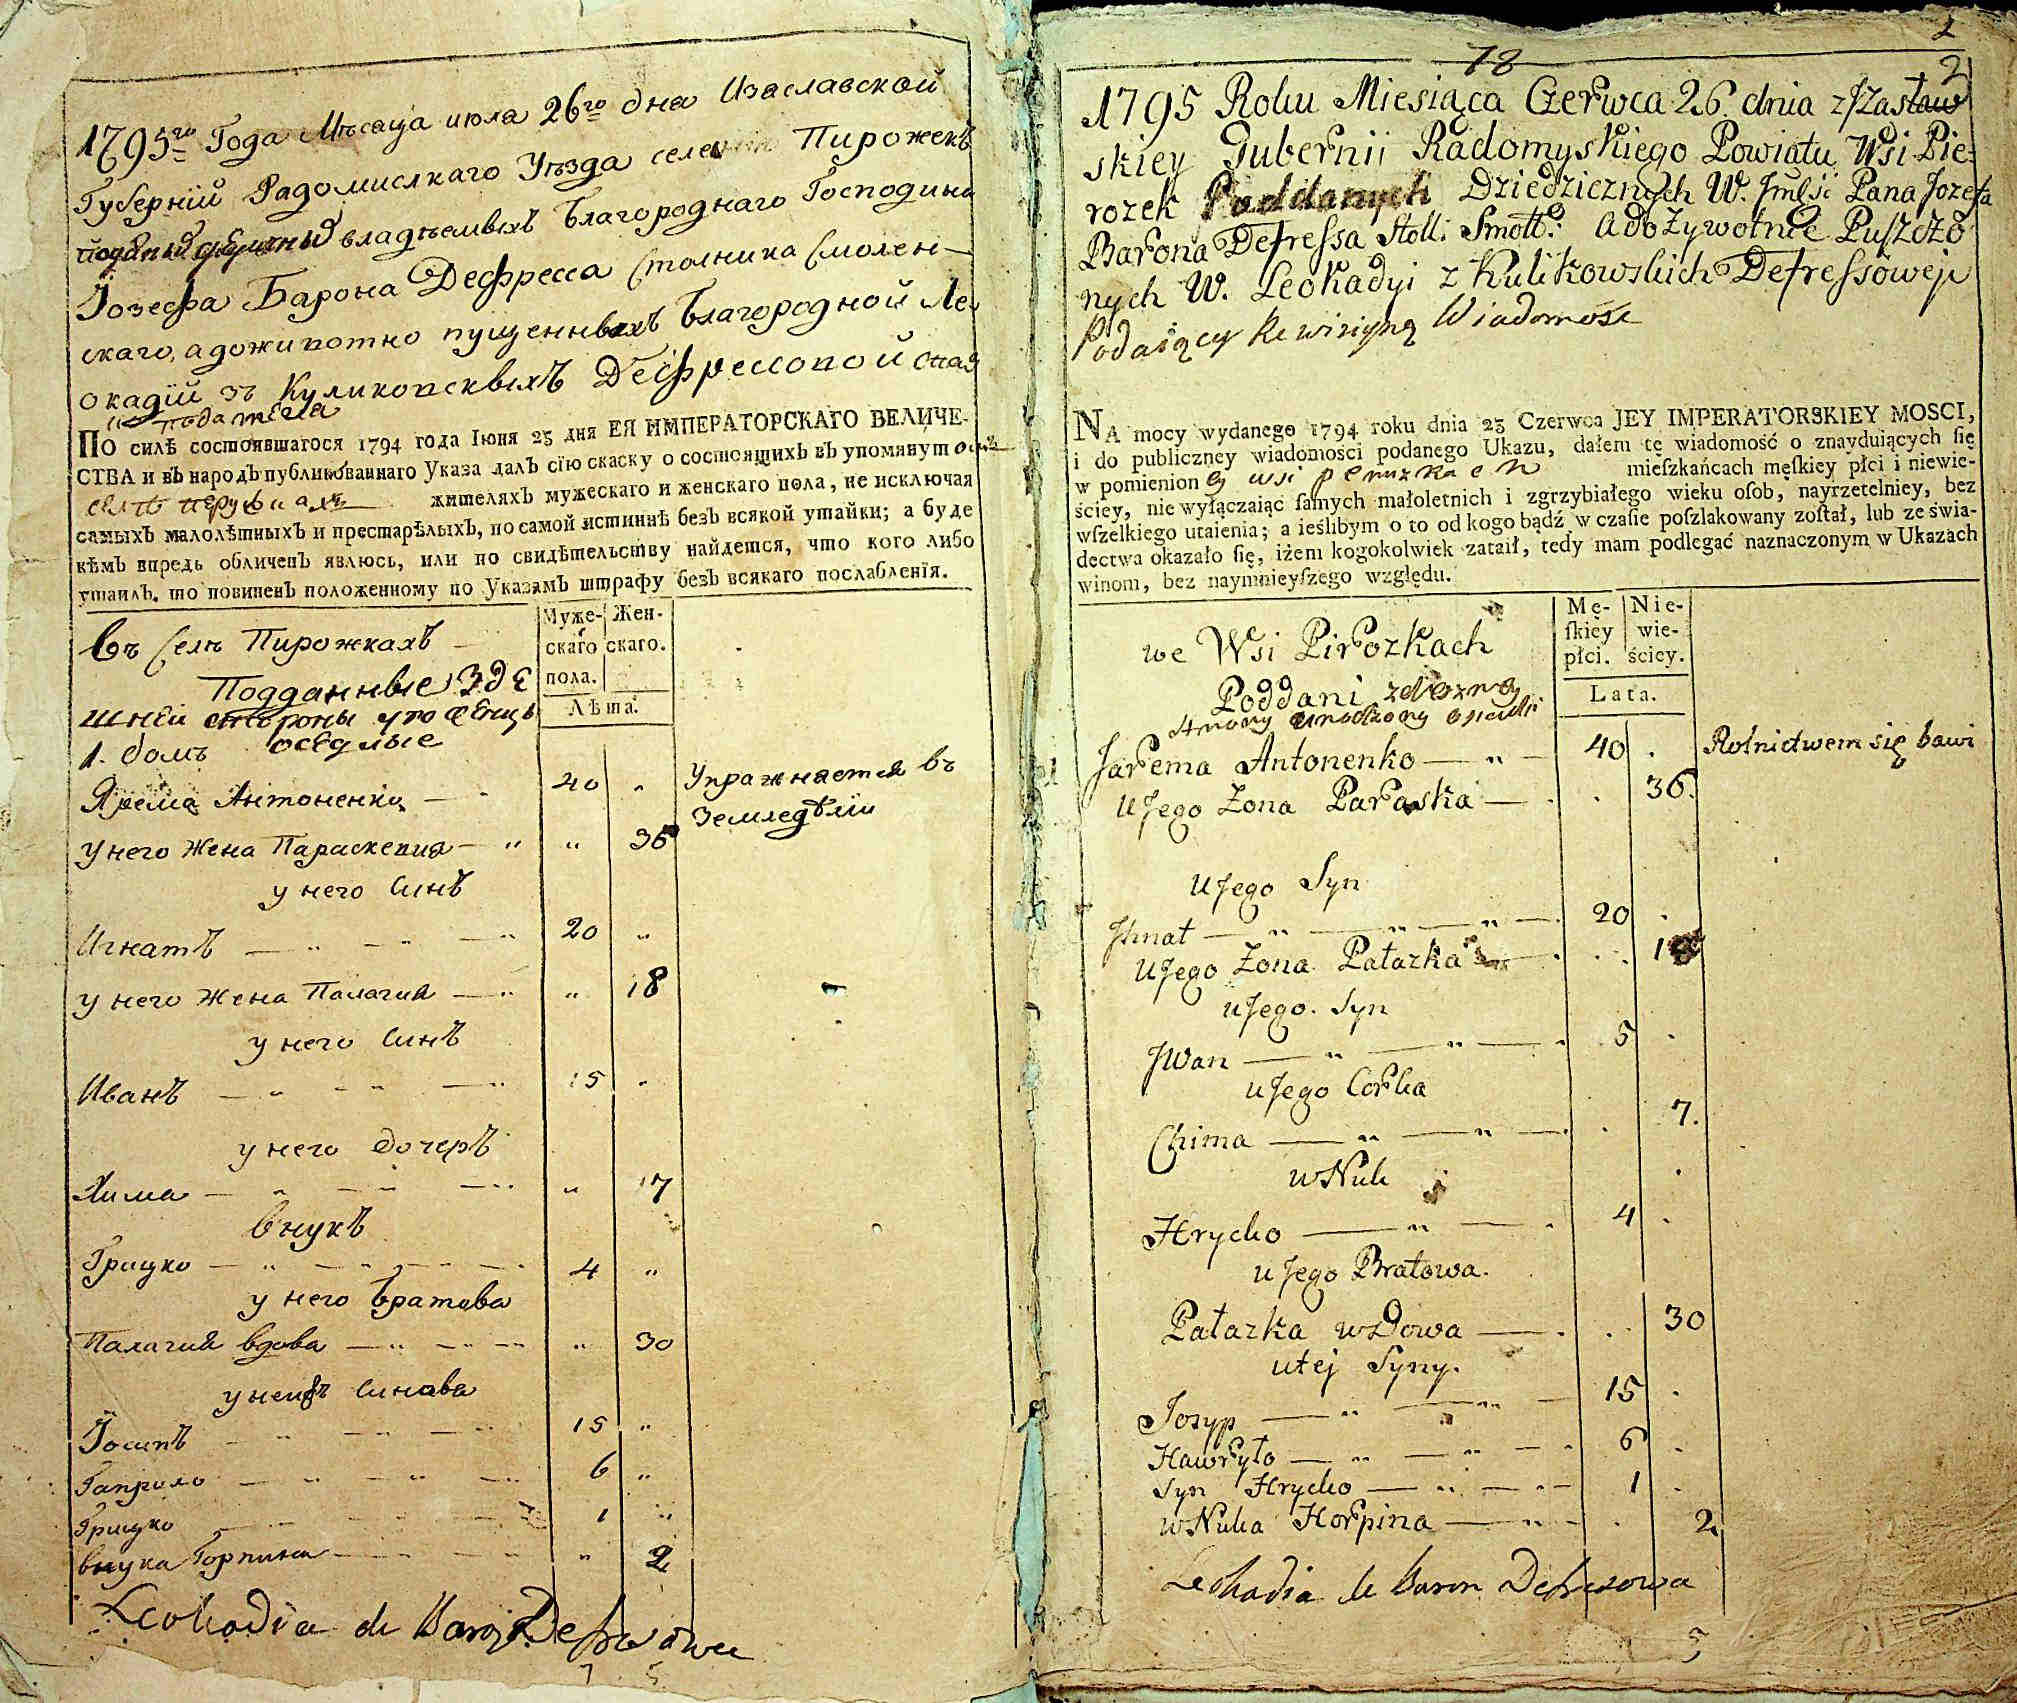 1795го Года Мѣсаца июля 26го дна Изаславской
Губернїй Радомислкаго Уѣзда селе Пирожекъ
владѣемыхъ благороднаго Господина
Їозефа Барона Дефресса Столника Смолен-
скаго, адоживотно пущенныхъ благородной Ле
окадїй зъ Куликопскихъ Дефрессопой
ПО силѣ состоявшагося 1794 года Іюня 23 дня ЕЯ ИМПЕРАТОРСКАГО ВЕЛИЧЕ-
СТВА и въ народъ публикованнаго Указа далъ сїю скаску о состоящихъ въ упомянутомъ
жителяхъ мужескаго и женскаго пола, не исключая
самыхъ малолѣтныхъ и престарѣлыхъ, по самой истиннѣ безъ всякой утайки; а буде
кѣмъ впредь обличенъ явлюсь, или по свидѣтельству найдется, что кого либо
утаилъ, то повиненъ положенному по Указамъ штрафу безъ всякаго послабленїя.
Муже- Жен-
скаго скаго.
пола.
Лѣта.
въ Селѣ Пирожкахъ
Подданные Зде
шней стороны уроженцы
оседлые
1. домъ
Ярема Антоненко — 40 Упражняется въ
Земледѣлїи
у него Жена Параскепия — „ „ 36
у него Синъ
Игнатъ — „ — „ — „ 20 „
у него Жена Палагия — „ „ 18
у него Синъ
Иванъ — „ — „ — „ 15 „
у него дочеръ
Хима — „ — „ — „ „ 17
внукъ
Грицко — „ — „ — „ 4 „
у него братова
Палагия вдова — „ — „ „ 30
у неи Синова
Їосипъ — „ — „ — 15 „
Гаприло — „ — „ — 6 „
Грицко 1 „
внука Горпина — „ 2
Leokadia de Baron Defresowa
78
2
2
1795 Roku Miesiąca Czerwca 26 dnia z Jzasław
skiey Gubernii Radomyskiego Powiatu Wsi Pie-
rozek Poddanych Dziedzicznych W. Jmści Pana Jozefa
Barona Defressa Stoll: Smoll: a dożywotnie Puszczo
nych W. Leokadyi z Kulikowskich Defressowey
Podaiący Rewizyiną Wiadomość
NA mocy wydanego 1794 roku dnia 23 Czerwca JEY IMPERATORSKIEY MOSCI,
i do publiczney wiadomości podanego Ukazu, dałem tę wiadomość o znayduiących ſię
w pomienioney wsi mieſzkańcach męſkiey płci i niewie-
ściey, nie wyłączaiąc ſamych małoletnich i zgrzybiałego wieku oſob, nayrzetelniey, bez
wſzelkiego utaienia; a ieślibym o to od kogo bądź w czaſie poſzlakowany zoſtał, lub ze świa-
dectwa okazało ſię, iżem kogokolwiek zataił, tedy mam podlegać naznaczonym w Ukazach
winom, bez naymnieyſzego względu.
Mę- Nie-
ſkiey wie-
płci. ściey.
Lata.
we Wsi Pirozkach
Poddani
Jarema Antonenko — „ — 40 . Rolnictwem się bawi
U Jego Zona Paraska — . . 36.
U Jego Syn
Jhnat — „ — „ — „ — . 20 .
U Jego Zona Pałazka — . . .
u Jego. Syn
JWan — „ — „ — . 5 .
u Jego Corka
Chima — „ — „ — . . 7.
wNuk
Hrycko — „ — . 4 .
u Jego Bratowa.
Pałazka wdowa — . . . 30
u tej Syny.
Josyp — „ — „ — 15 .
Hawryło — „ — „ — . 6 .
Syn Hrycko — „ — 1 .
wNuka Horpina — „ — . 2
Leokadia de Baron Defresowa
5